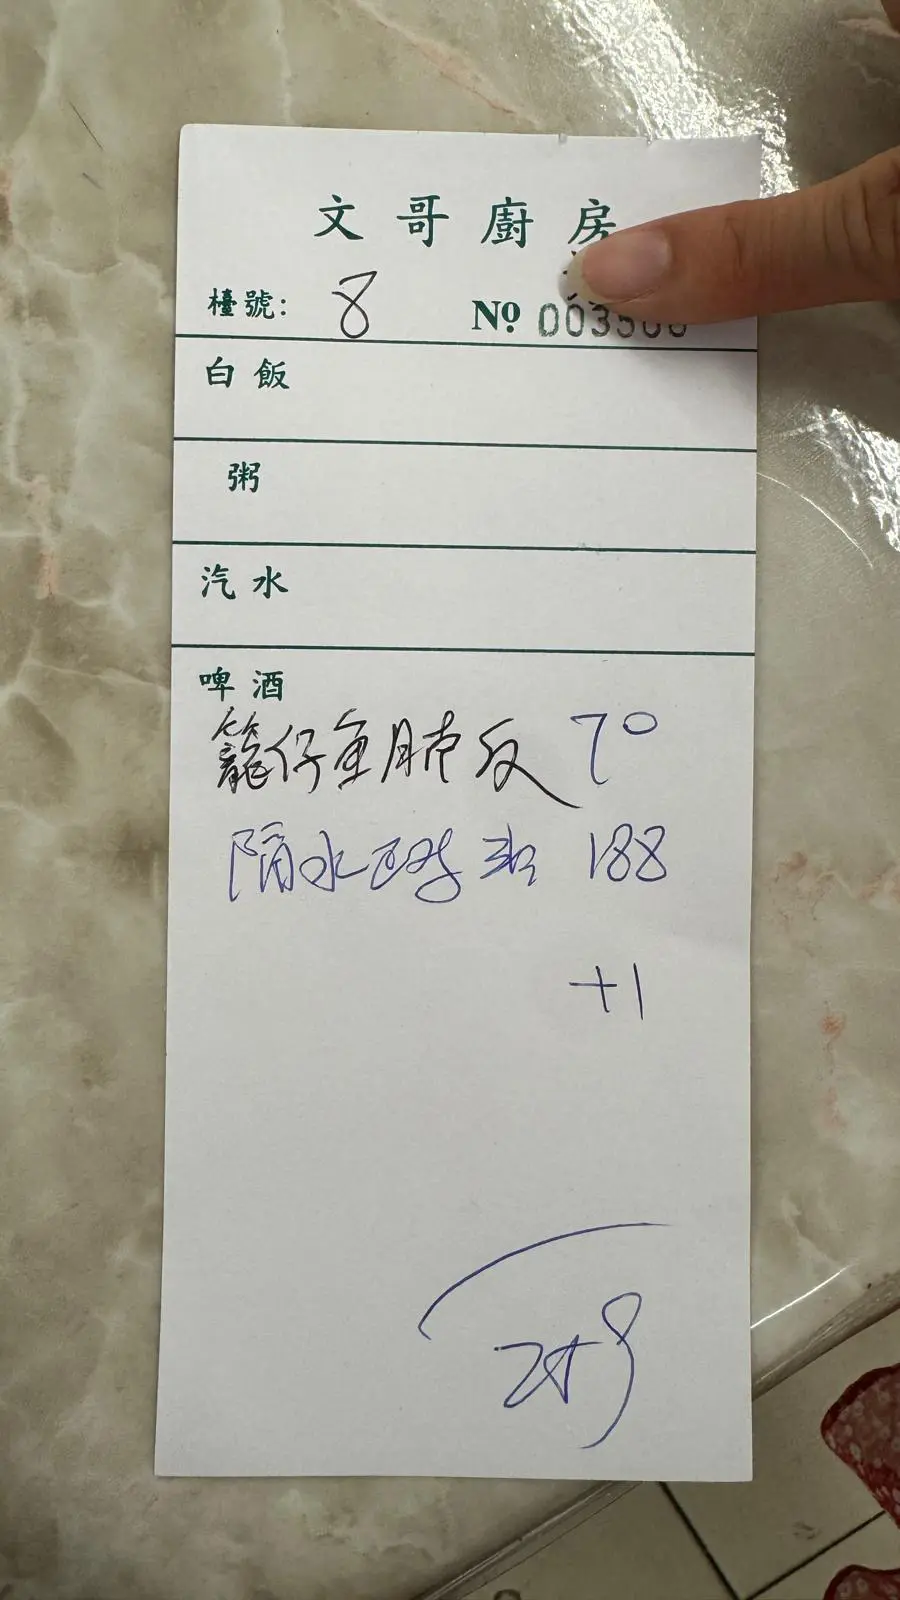 文哥廚房
檯號: 8 Nº 0035
白飯
粥
汽水
啤酒
籠仔魚肺反 70
隔水 188
+1